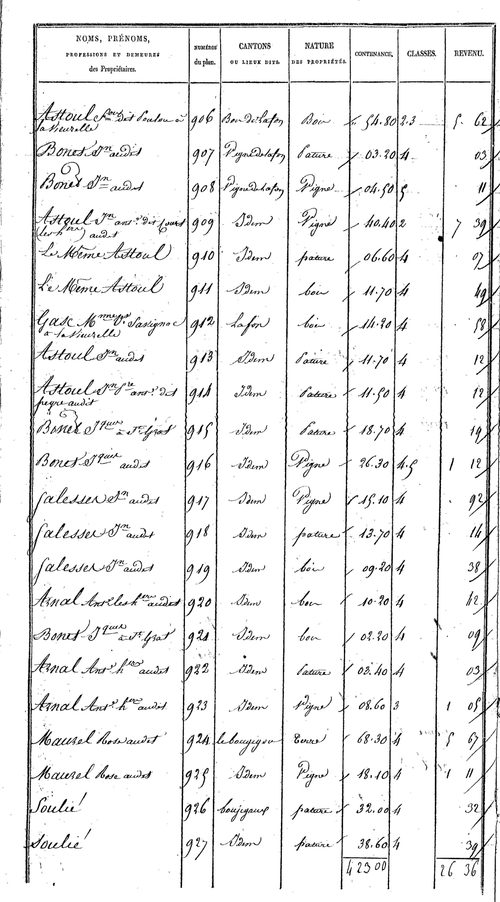 NOMS, PRÉNOMS, PROFESSIONS ET DEMEURES des Propriétaires. NUMÉROS du plan. CANTONS OU LIEUX DITS. NATURE DES PROPRIÉTÉS. CONTENANCE. CLASSES. REVENU.
Astoul dit Poulou à 906 Bois de Lafon Bois 54.80 2.3 5. 62
la Vieurelle
Bonet Jn audit 907 Vigne de Lafon Pature 03.20 4 03
Bonet Jn audit 908 Vigne de Lafon Vigne 04.50 5 11
Astoul Jn ant. dit 909 Idem Vigne 40.40 2 7 39
(les hers) audit
Le Même Astoul 910 Idem pature 06.60 4 07
Le Même Astoul 911 Idem bois 11.70 4 49
Gasc Savignac 912 Lafon bois 14.20 4 58
à la Vieurelle
Astoul Jn audit 913 Idem Pature 11.70 4 12
Astoul Jn Pre ant. dit 914 Idem Pature 11.50 4 12
peyre audit
Bonet Jques à St Grat 915 Idem Pature 18.70 4 19
Bonet Jques audit 916 Idem Vigne 26.30 4.5 1 12
Galesser Jn audit 917 Idem Vigne 15.10 4 92
Galesser Jn audit 918 Idem pature 13.70 4 14
Galesser Jn audit 919 Idem bois 09.20 4 38
Arnal Ant. les hers audit 920 Idem bois 10.20 4 42
Bonet Jques à St Grat 921 Idem bois 02.20 4 09
Arnal Ant. hers audit 922 Idem Pature 03.40 4 03
Arnal Ant. hers audit 923 Idem Vigne 08.60 3 1 05
Maurel Rose audit 924 le boujigou Terre 68.30 4 5 67
Maurel Rose audit 925 Idem Vigne 18.10 4 1 11
Soulié 926 pature 32.00 4 32
Soulié 927 Idem pature 38.60 4 39
4 23 00 26 36